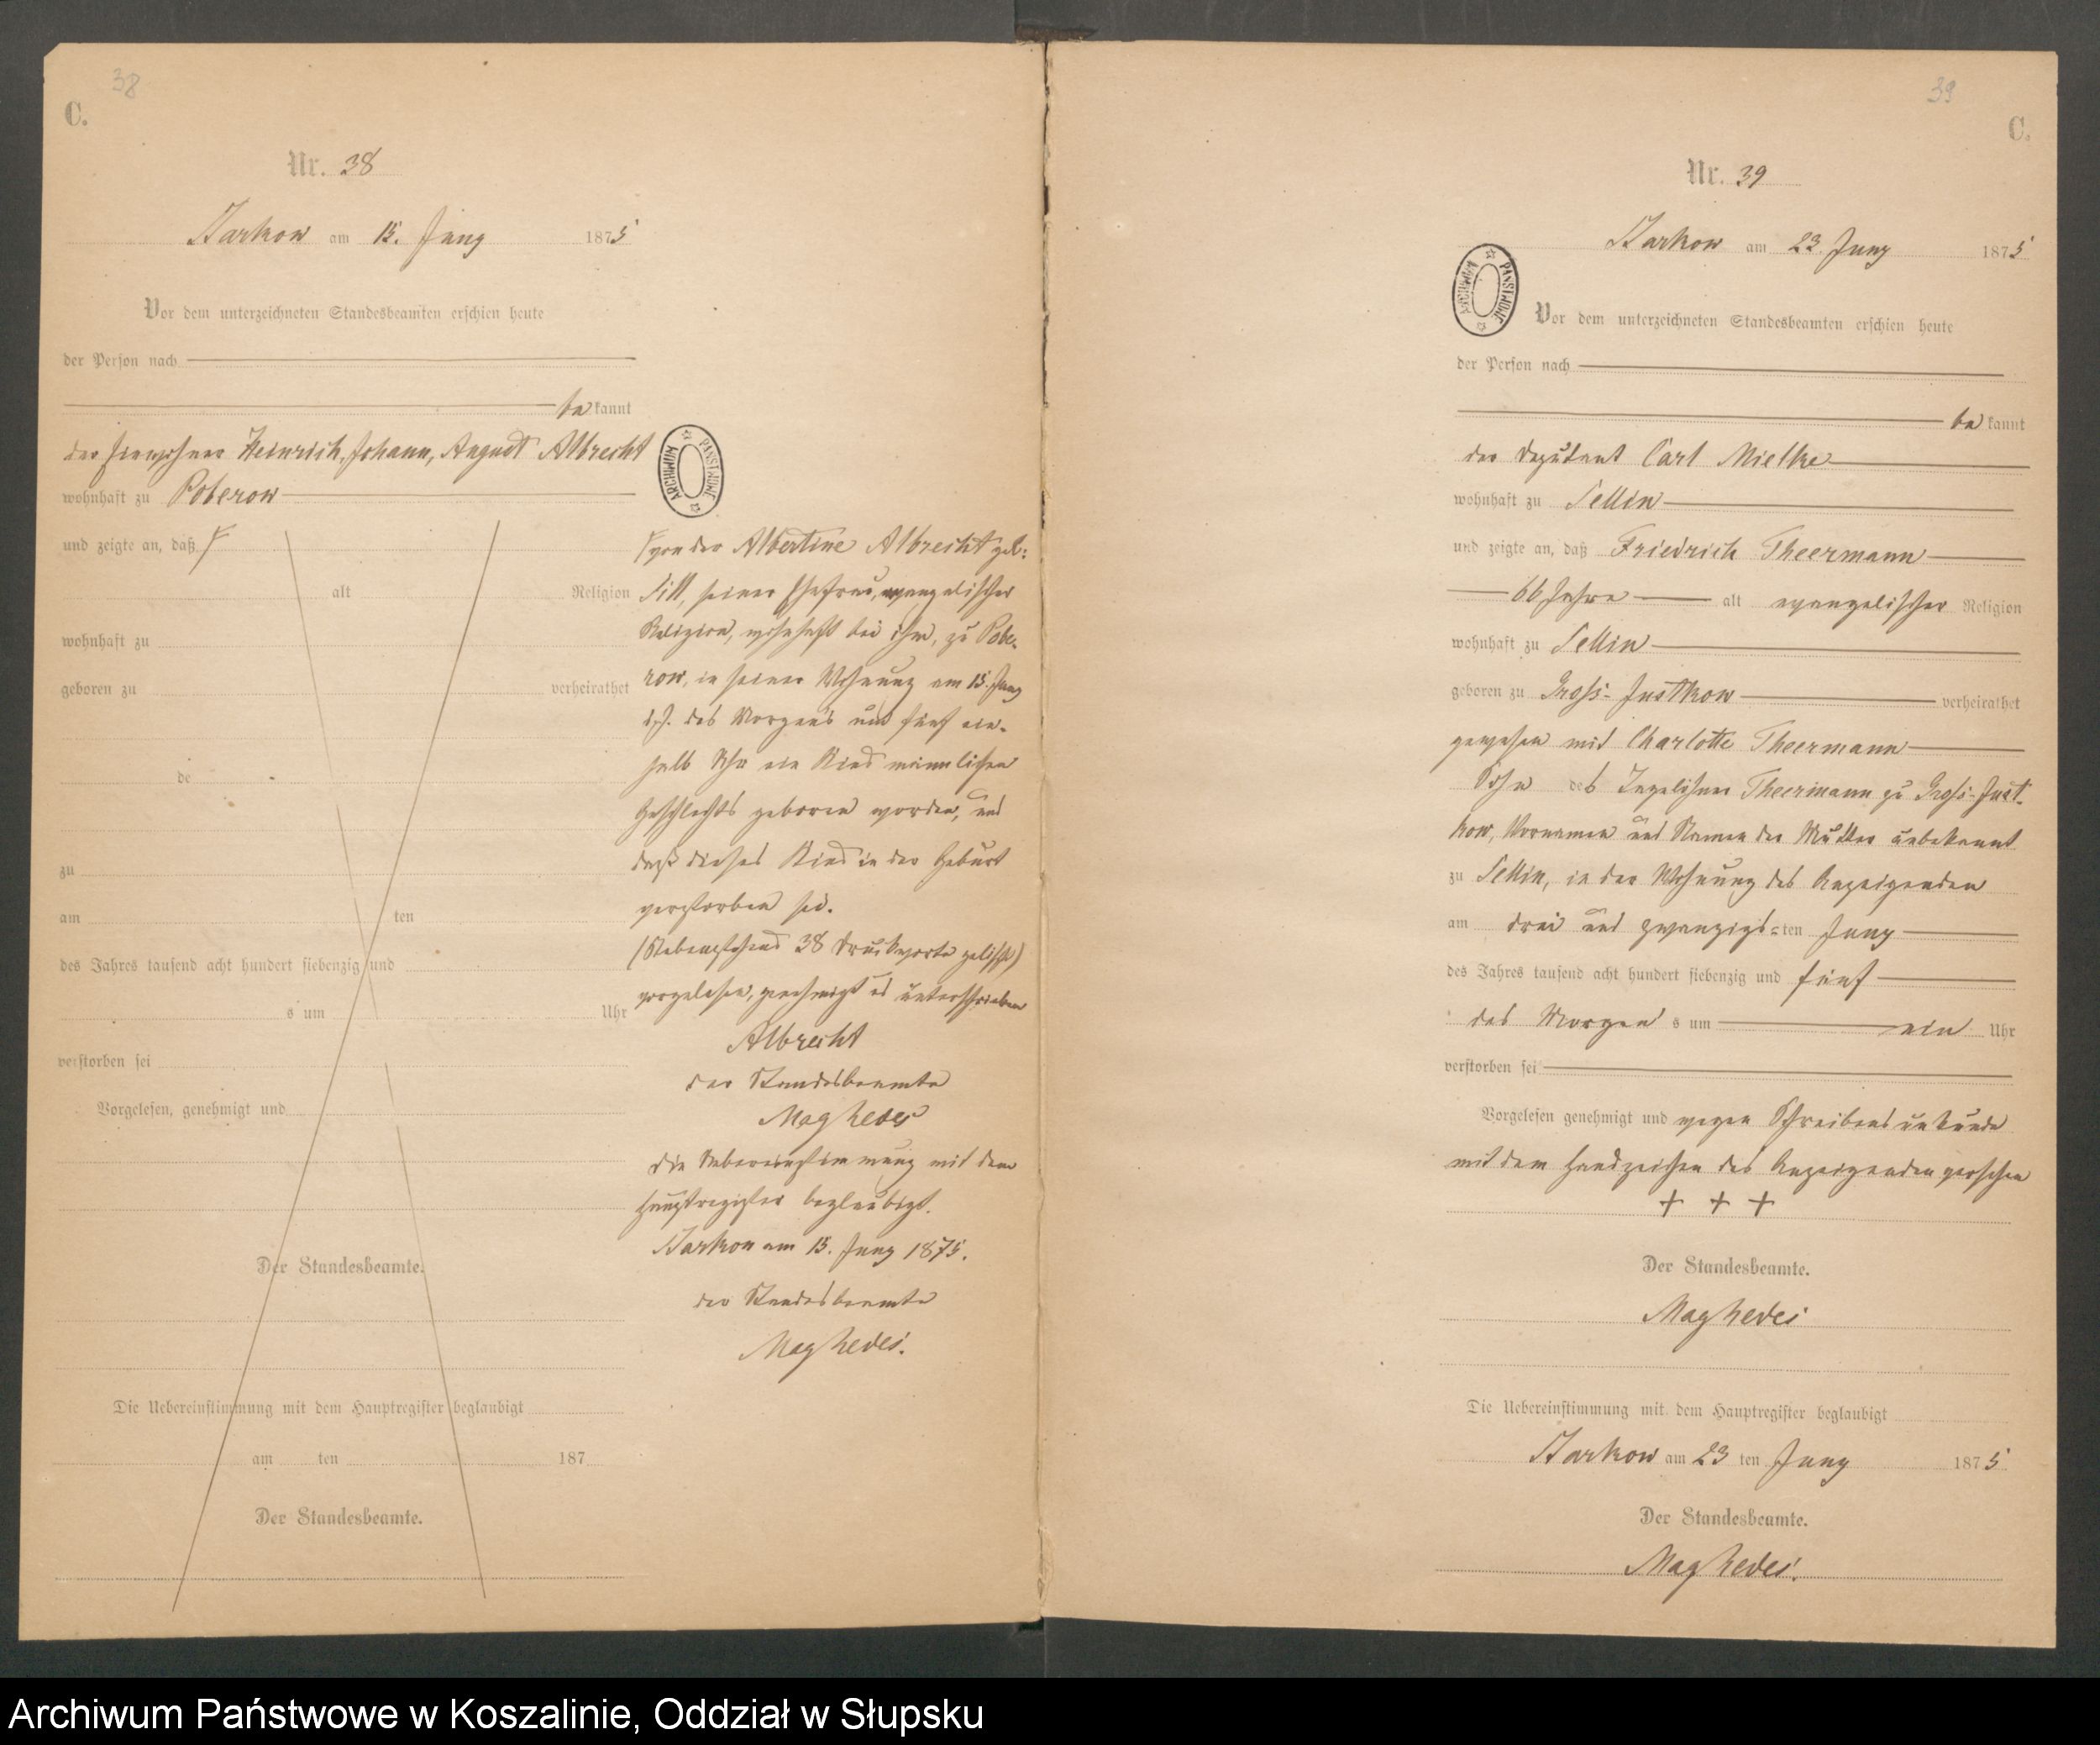 38
C.
Nr. 38
Starkow am 15. Juny 1875
Vor dem unterzeichneten Standesbeamten erschien heute
der Person nach
be kannt
der Einwohner Heinrich, Johann, August Albrecht
wohnhaft zu Poberow
und zeigte an, daß
alt Religion
wohnhaft zu
geboren zu verheirathet
de
zu
am ten
des Jahres tausend acht hundert siebenzig und
s um Uhr
verstorben sei
Vorgelesen, genehmigt und
Der Standesbeamte.
Die Uebereinstimmung mit dem Hauptregister beglaubigt
am ten 187
Der Standesbeamte.
ARCHIWUM PAŃSTWOWE
von der Albertine Albrecht geb:
Sill, seiner Ehefrau, evangelischer
Religion, wohnhaft bei ihm, zu Pobe-
row, in seiner Wohnung am 15. Juny
d. J. des Morgens um fünf ein-
halb Uhr ein Kind männlichen
Geschlechts geboren worden, und
daß dieses Kind in der Geburt
verstorben sei.
(Nebenstehend 38 Druckworte gelöscht)
vorgelesen, genehmigt u unterschrieben
Albrecht
der Standesbeamte
Die Uebereinstimmung mit dem
Hauptregister beglaubigt.
Starkow am 15. Juny 1875.
der Standesbeamte
39
C.
Nr. 39
Starkow am 23. Juny 1875
ARCHIWUM PAŃSTWOWE
Vor dem unterzeichneten Standesbeamten erschien heute
der Person nach
be kannt
der Deputant Carl Mielke
wohnhaft zu Sellin
und zeigte an, daß Friedrich Theermann
66 Jahre alt evangelischer Religion
wohnhaft zu Sellin
geboren zu Groß-Justkow verheirathet
gewesen mit Charlotte Theermann
Sohn des Tagelöhner Theermann zu Groß-Just-
kow, Vornamen und Namen der Mutter unbekannt
zu Sellin, in der Wohnung des Anzeigenden
am drei und zwanzigs-ten Juny
des Jahres tausend acht hundert siebenzig und fünf
des Morgen s um ein Uhr
verstorben sei
Vorgelesen genehmigt und wegen Schreibensunkunde
mit dem Handzeichen des Anzeigenden versehen
+ + +
Der Standesbeamte.
Die Uebereinstimmung mit dem Hauptregister beglaubigt
Starkow am 23 ten Juny 1875
Der Standesbeamte.
Archiwum Państwowe w Koszalinie, Oddział w Słupsku